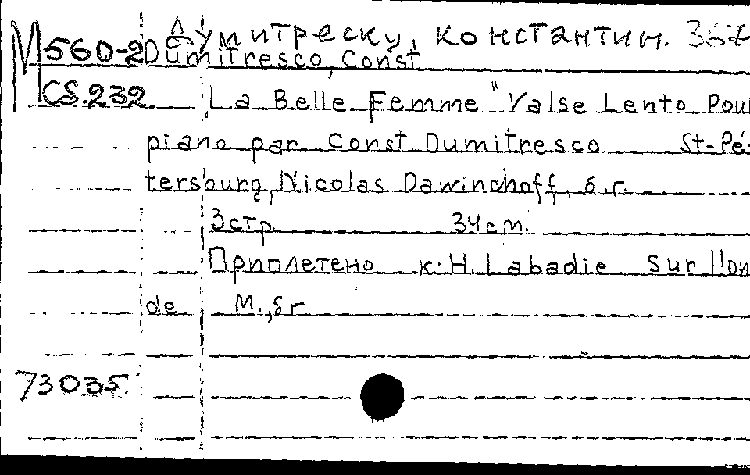 Думитреску, константин. 367
М560-2 Dumitresco, Const
CS.232 La Belle Femme "Valse Lento Pour
piano par Const Dumitresco St-Pé-
tersburg, Nicolas Dawinghoff, б.г.
3стр. 34см.
Приплетено к: H. Labadie Sur l'on
de M., бг
73035.